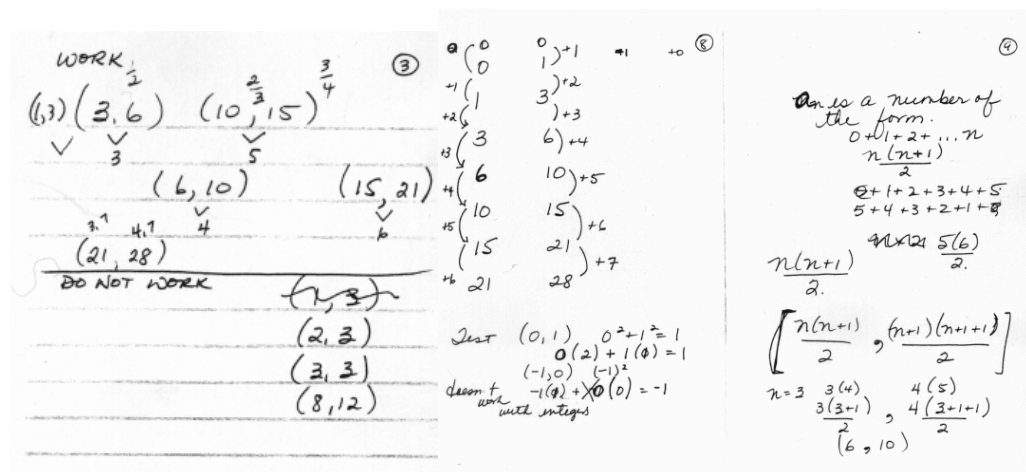 WORK
③
1/2 2/3 3/4
(1,3) (3,6) (10,15)
3 5
(6,10) (15,21)
4 6
3,7 4,7
(21,28)
DO NOT WORK
(1,3)
(2,3)
(3,3)
(8,12)
⑧
0 0 +1 +0
0 1
+1 +2
1 3
+2 +3
3 6
+3 +4
6 10
+4 +5
10 15
+5 +6
15 21
+6 +7
21 28
Test (0,1) 0²+1²=1
0(2)+1(1)=1
(-1,0) (-1)²
doesn't -1(1)+0(0)=-1
work
with integers
⑨
is a number of
the form.
0+1+2+...n
n(n+1)/2
0+1+2+3+4+5
5+4+3+2+1+0
5(6)/2.
n(n+1)/2.
[n(n+1)/2, (n+1)(n+1+1)/2]
n=3 3(4) 4(5)
3(3+1)/2, 4(3+1+1)/2
(6,10)